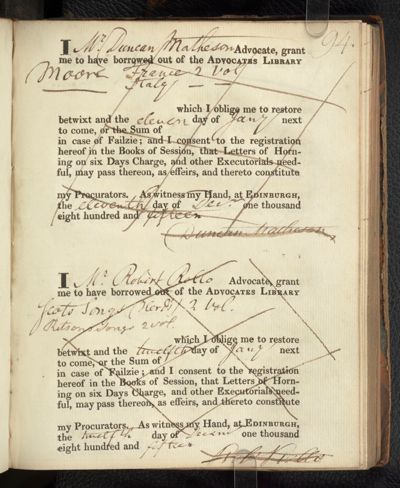 94.
I Mr. Duncan Matheson Advocate, grant
me to have borrowed out of the ADVOCATES LIBRARY
Moore France 2 vol
Italy —
which I oblige me to restore
betwixt and the eleven day of Jany next
to come, or the Sum of
in case of Failzie; and I consent to the registration
hereof in the Books of Session, that Letters of Horn-
ing on six Days Charge, and other Executorials need-
ful, may pass thereon, as effeirs, and thereto constitute
my Procurators. As witness my Hand, at EDINBURGH,
the eleventh day of Decr. one thousand
eight hundred and fifteen
Duncan Matheson
I Mr. Robert Rollo Advocate, grant
me to have borrowed out of the ADVOCATES LIBRARY
Scots Songs (Herd) 2 vol.
Ritsons Songs 2 vol.
which I oblige me to restore
betwixt and the twelfth day of Jany next
to come, or the Sum of
in case of Failzie; and I consent to the registration
hereof in the Books of Session, that Letters of Horn-
ing on six Days Charge, and other Executorials need-
ful, may pass thereon, as effeirs, and thereto constitute
my Procurators. As witness my Hand, at EDINBURGH,
the twelfth day of one thousand
eight hundred and fifteen
Rollo